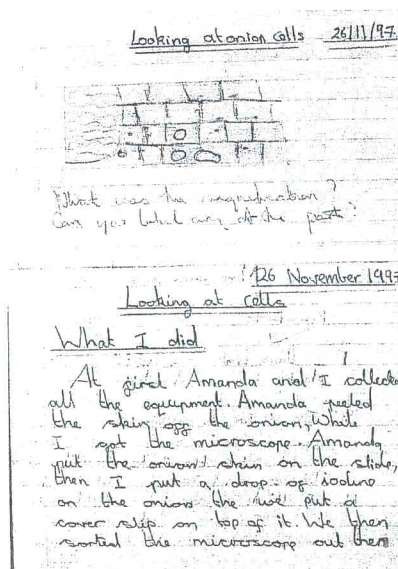 Looking at onion cells 26/11/97
What was the magnification?
Can you label any of the parts?
26 November 1997
Looking at cells
What I did
At first Amanda and I collected
all the equipment. Amanda peeled
the skin off the onion, While
I got the microscope. Amanda
put the onion skin on the slide,
then I put a drop of iodine
on the onion the we put a
cover slip on top of it. We then
sorted the microscope out then